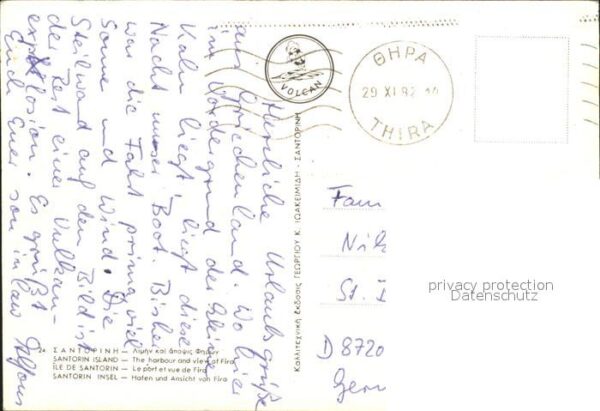 Herzliche Urlaubsgrüße
aus Griechenland. Wo hier
im Vordergrund der kleine
Kahn liegt, liegt diese
Nacht unser Boot. Bisher
war die Fahrt prima, viel
Sonne und Wind. Die
Steilwand auf dem Bild ist
der Rest einer Vulkan-
explosion. Es grüßt
Euch Euer son in law Alfons
VOLCAN
ΘΗΡΑ
29 XI 82
THIRA
Καλλιτεχνική ἔκδοσις ΓΕΩΡΓΙΟΥ Κ. ΙΩΑΚΕΙΜΙΔΗ - ΣΑΝΤΟΡΙΝΗ
Fam
Nik
St.
D 8720
Germ
privacy protection
Datenschutz
24 ΣΑΝΤΟΡΙΝΗ — Λιμήν καί ἄποψις Φηρῶν
SANTORIN ISLAND — The harbour and view of Fira
ÎLE DE SANTORIN — Le port et vue de Fira
SANTORIN INSEL — Hafen und Ansicht von Fira